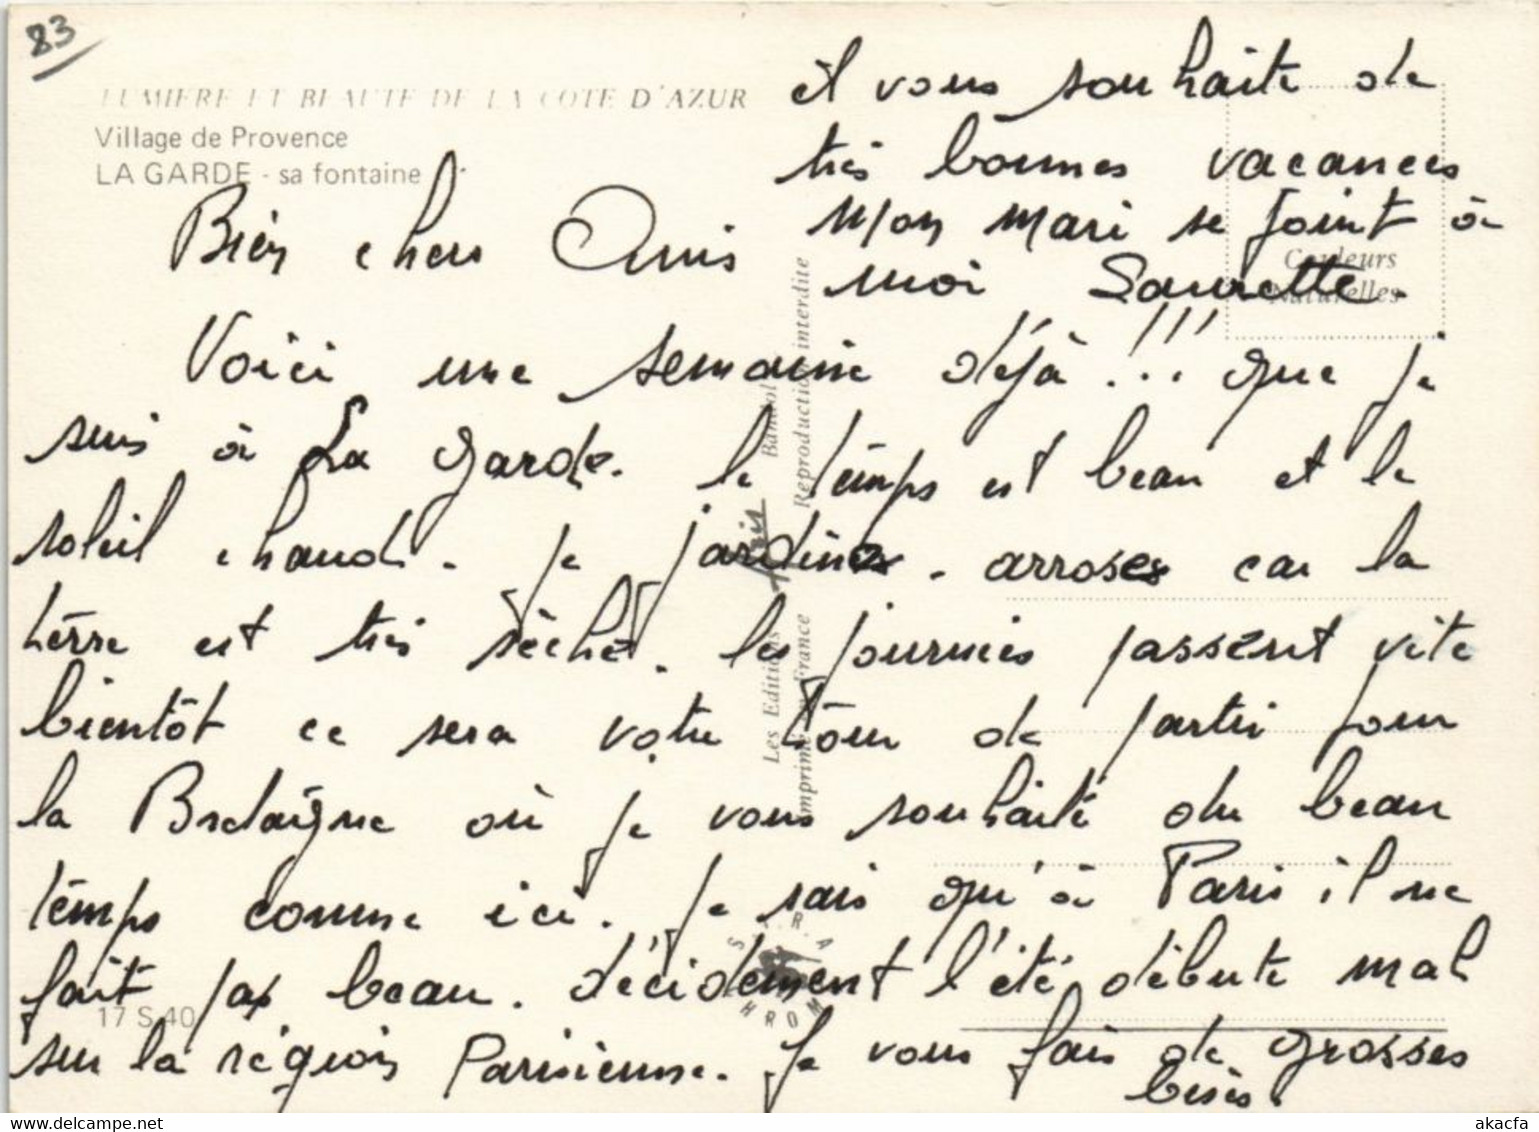 83
LUMIERE ET BEAUTE DE LA COTE D'AZUR
Village de Provence
LA GARDE - sa fontaine
Bien chers Amis
Voici une semaine déjà !!! que je
suis à La Garde. le temps est beau et le
soleil chaud. je jardine. arroses car la
terre est très sèche. les journées passent vite
bientôt ce sera votre tour de partir pour
la Bretaigne où je vous souhaite du beau
temps comme ici. je sais qu'à Paris il ne
fait pas beau. décidement l'été débute mal
sur la région Parisienne. Je vous fais de grosses
bises.
il vous souhaite de
très bonnes vacances
Mon mari se joint à
moi
Couleurs
Naturelles
Les Editions Bandol
Imprimé en France Reproduction interdite
17 S 40
delcampe.net
akacfa